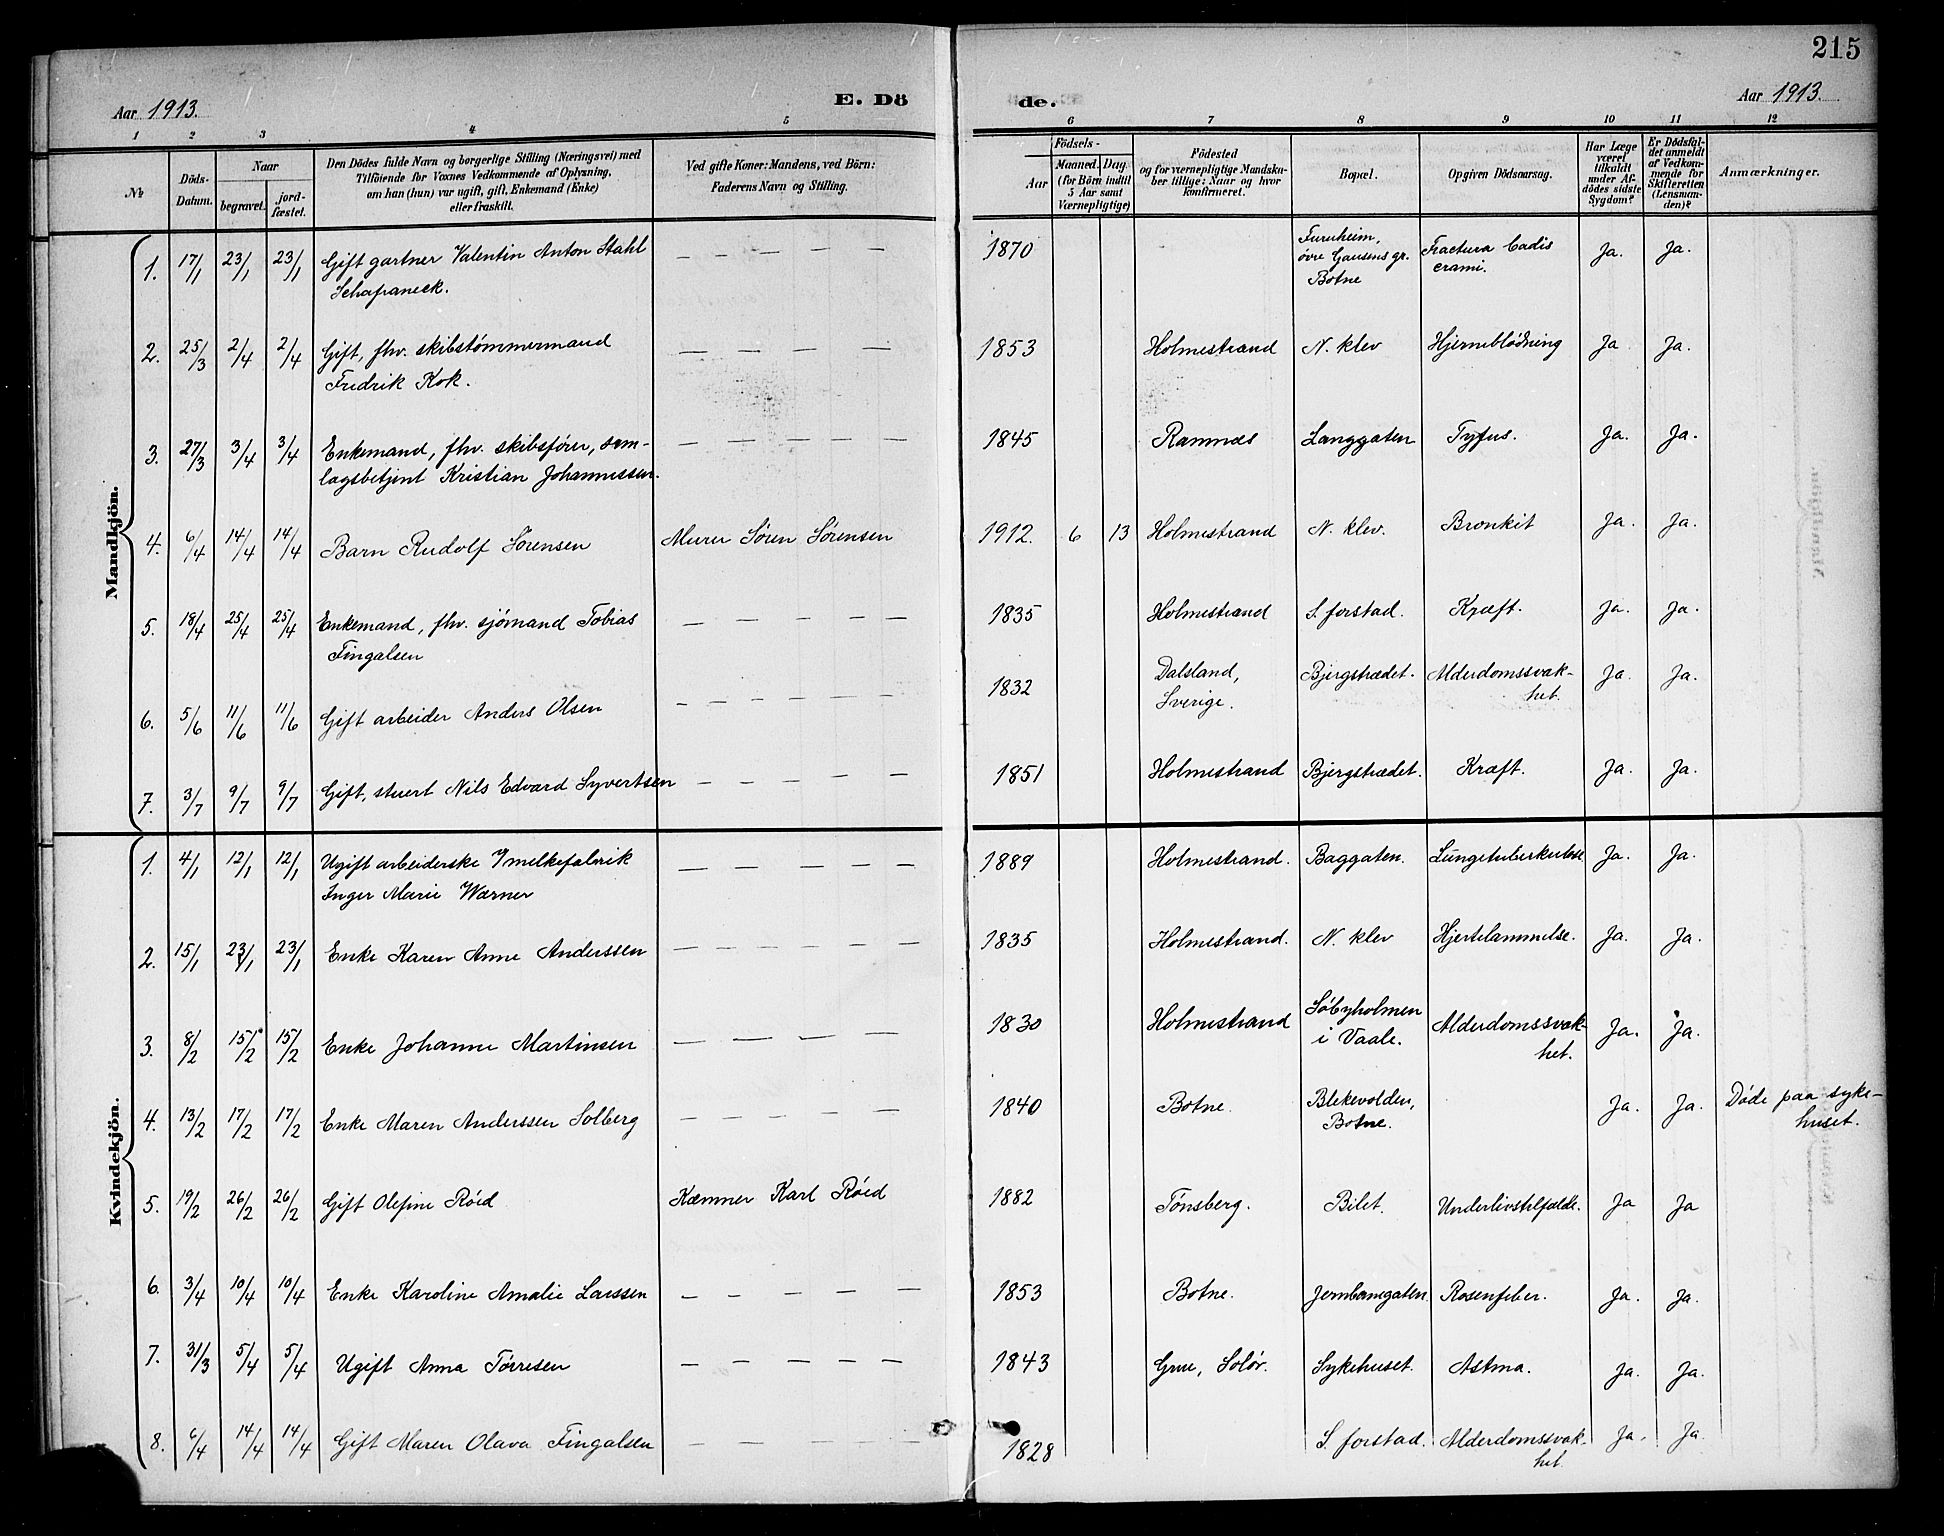 215
Aar 1913.
E. Dö
de.
Aar 1913.
1 2 3 4 5 6 7 8 9 10 11 12
№
Döds-Datum.
Naar
begravet.
jord-fæstet.
Den Dödes fulde Navn og borgerlige Stilling (Næringsvei) med
Tilföiende for Voxnes Vedkommende af Oplysning,
om han (hun) var ugift, gift, Enkemand (Enke)
eller fraskilt.
Ved gifte Koner: Mandens, ved Börn:
Faderens Navn og Stilling.
Födsels-
Aar
Maaned. Dag
(for Börn indtil
5 Aar samt
Værnepligtige)
Födested
og for værnepligtige Mandska-
ber tillige: Naar og hvor
konfirmeret.
Bopæl.
Opgiven Dödsaarsag.
Har Læge
været
tilkaldt
under Af-
dödes sidste
Sygdom?
Er Dödsfal-
det anmeldt
af Vedkom-
mende for
Skifteretten
(Lensman-
den)?
Anmærkninger.
Mandkjön.
1. 17/1 23/1 23/1 Gift gartner Valentin Anton Stahl — — — — — 1870 Furuheim, Fractura badis Ja. Ja.
Schafraneck. øvre Gausens gr. crami.
Botne
2. 25/3 2/4 2/4 Gift, fhv. skibstømmermand — — — — — 1853 Holmestrand N. klev Hjerneblødning Ja Ja.
Fredrik Kok.
3. 27/3 3/4 3/4 Enkemand, fhv. skibsfører, sam- — — — — — 1845 Ramnæs Langgaten Tyfus. Ja. Ja.
lagsbetjent Kristian Johannessen.
4. 6/4 14/4 14/4 Barn Rudolf Sørensen Murer Søren Sørensen 1912. 6 13 Holmestrand N. klev. Bronkit Ja. Ja.
5. 18/4 25/4 25/4 Enkemand, fhv. sjømand Tobias — — — — — 1835 Holmestrand S. forstad. Kræft. Ja. Ja.
Fingalsen
6. 5/6 11/6 11/6 Gift arbeider Anders Olsen — — — — — 1832 Dalsland, Bjergstrædet. Alderdomssvak- Ja. Ja.
Sverige. het.
7. 3/7 9/7 9/7 Gift, stuert Nils Edvard Syvertsen — — — — 1851 Holmestrand Bjergstrædet. Kræft. Ja. Ja.
Kvindekjön.
1. 4/1 12/1 12/1 Ugift arbeiderske i melkefabrik — — — — — 1889 Holmestrand. Baggaten. Lungetuberkulose Ja. Ja.
Inger Marie Wærner
2. 15/1 23/1 23/1 Enke Karen Anne Anderssen — — — — — 1835 Holmestrand. N. klev Hjertelammelse. Ja. Ja.
3. 8/2 15/2 15/2 Enke Johanne Martinsen — — — — 1830 Holmestrand Søbyholmen Alderdomssvak- Ja. Ja.
i Vaale. het.
4. 13/2 17/2 17/2 Enke Maren Anderssen Solberg — — — — — 1840 Botne. Blekevolden, Ja. Ja. Døde paa syke-
Botne. huset.
5. 19/2 26/2 26/2 Gift Olefine Røed Kæmner Karl Røed 1882 Tønsberg. Bilet. Underlivstilfælde. Ja Ja
6. 3/4 10/4 10/4 Enke Karoline Amalie Larssen — — — — — 1853 Botne. Jernbanegaten. Rosenfeber. Ja. Ja.
7. 31/3 5/4 5/4 Ugift Anna Tørresen — — — — — 1843 Grue, Solør. Sykehuset. Astma. Ja. Ja.
8. 6/4 14/4 14/4 Gift Maren Olava Fingalsen — — — — — 1828 S. forstad. Alderdomssvak- Ja. Ja.
het.